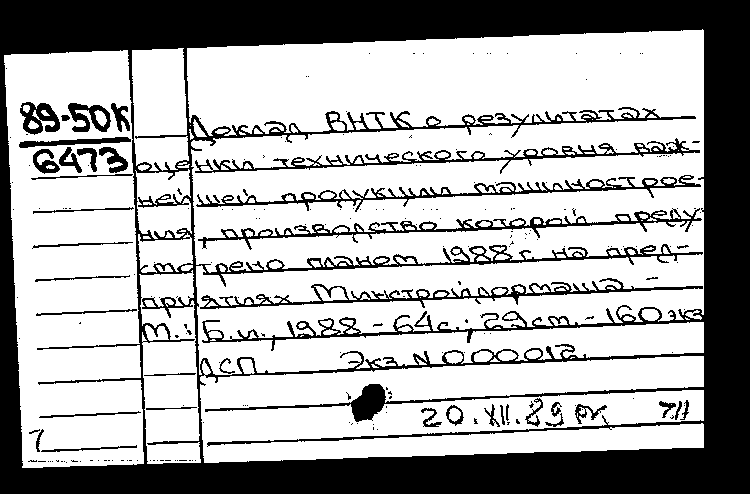 89-50К
6473
Доклад ВНТК о результатах
оценки технического уровня важ-
нейшей продукции машинострое-
ния, производство которой преду
смотрено планом 1988 г. на пред-
приятиях Минстройдормаша. -
М.: Б.и., 1988 - 64 с.; 29 см. - 160 экз
ДСП. Экз. N 000012.
20.XII.89 РК
7